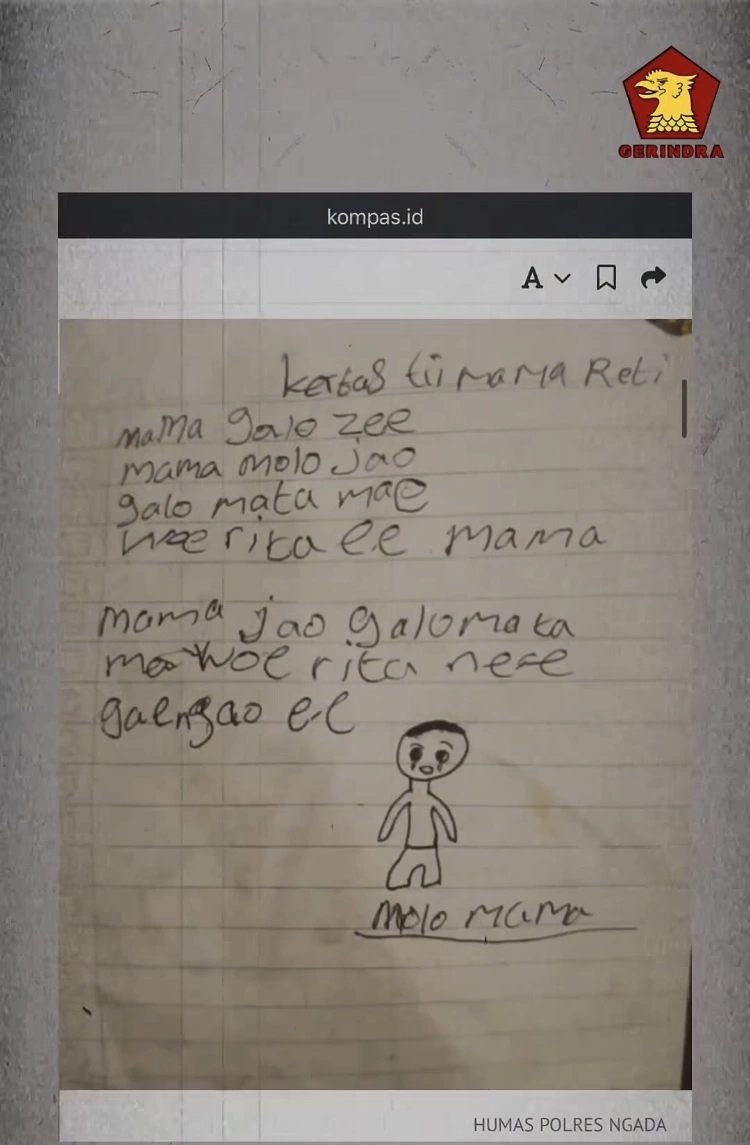 GERINDRA
kompas.id
A
kertas tii mama Reti
mama galo zee
mama molo jao
galo mata mae
woe rita ee mama
mama jao galo mata
mae woe rita ne-e
gae ngao e-e
molo mama
HUMAS POLRES NGADA